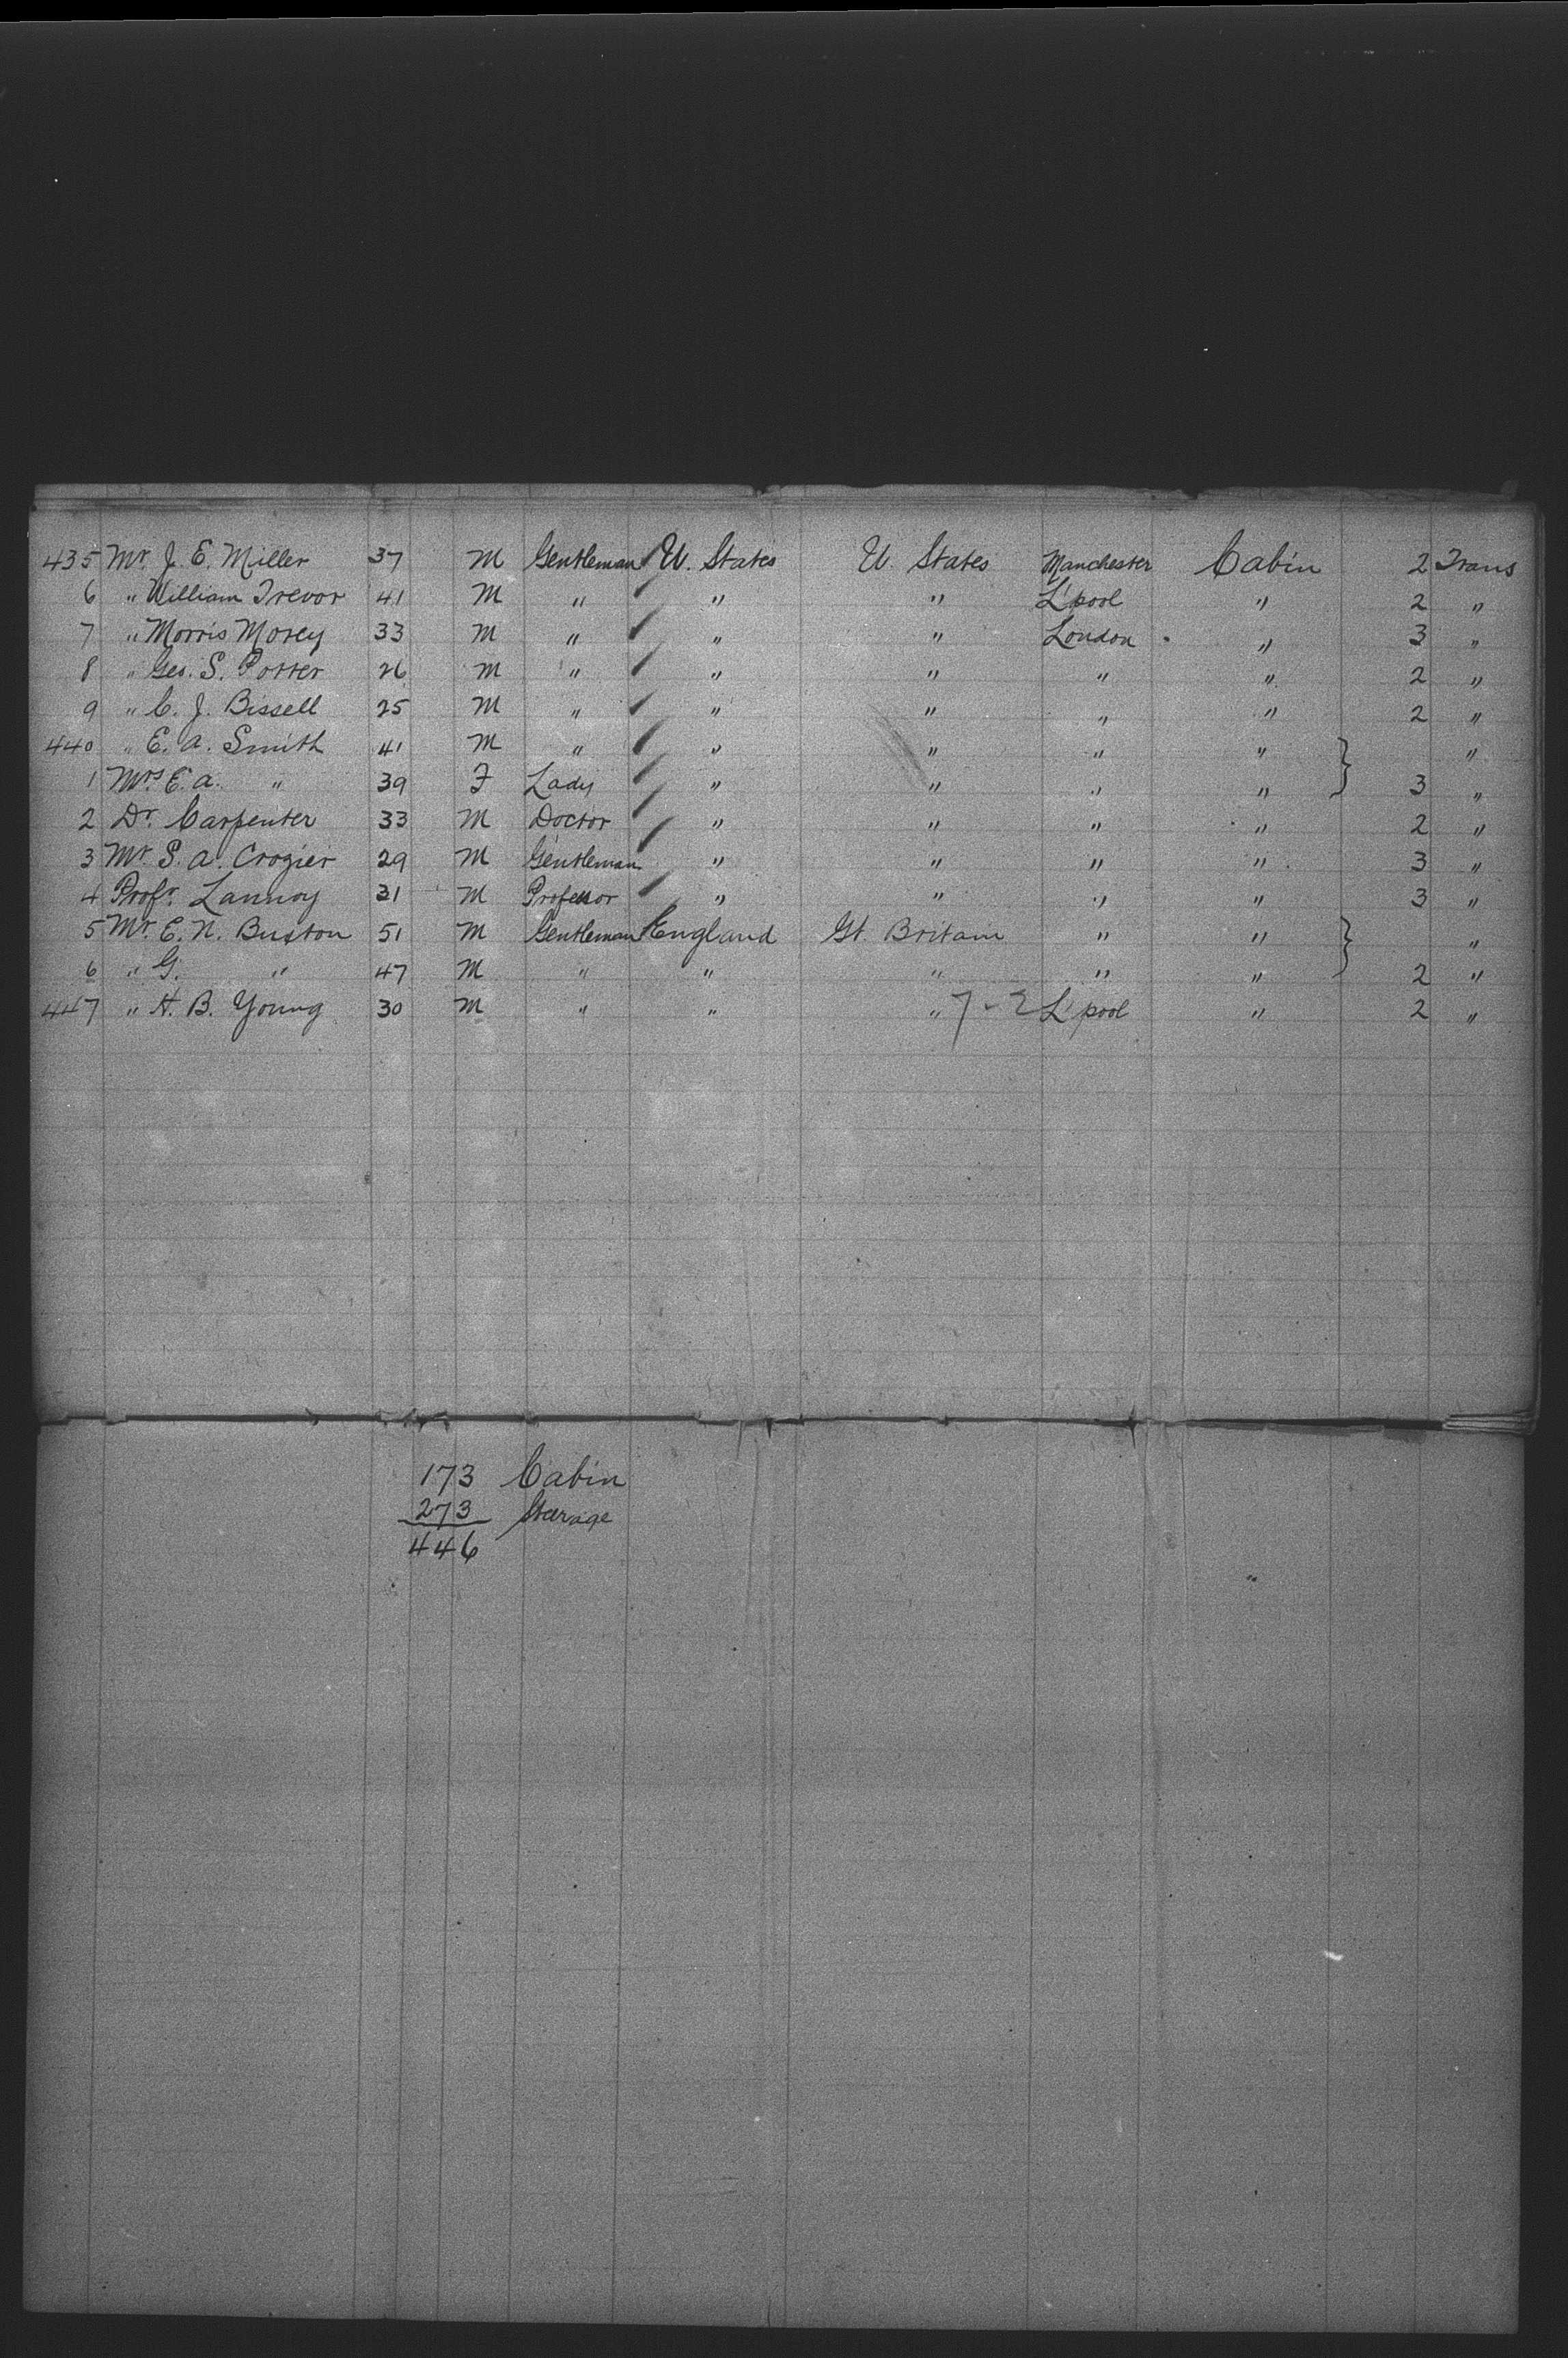 435 Mr. J. E. Miller 37 M Gentleman U. States U. States Manchester Cabin 2 Trans
6 " William Trevor 41 M " " " L'pool " 2 "
7 " Morris Morey 33 M " " " London " 3 "
8 " Geo. S. Potter 26 M " " " " " 2 "
9 " C. J. Bissell 25 M " " " " " 2 "
440 " E. A. Smith 41 M " " " " " "
1 Mrs E. A. " 39 F Lady " " " " 3 "
2 Dr. Carpenter 33 M Doctor " " " " 2 "
3 Mr. S. A. Crozier 29 M Gentleman " " " " 3 "
4 Profr. Lannoy 31 M Professor " " " " 3 "
5 Mr. E. N. Buxton 51 M Gentleman England Gt. Britain " " "
6 " G. " 47 M " " " " " 2 "
447 " H. B. Young 30 M " " " 7-2 L'pool " 2 "
173 Cabin
273 Steerage
446